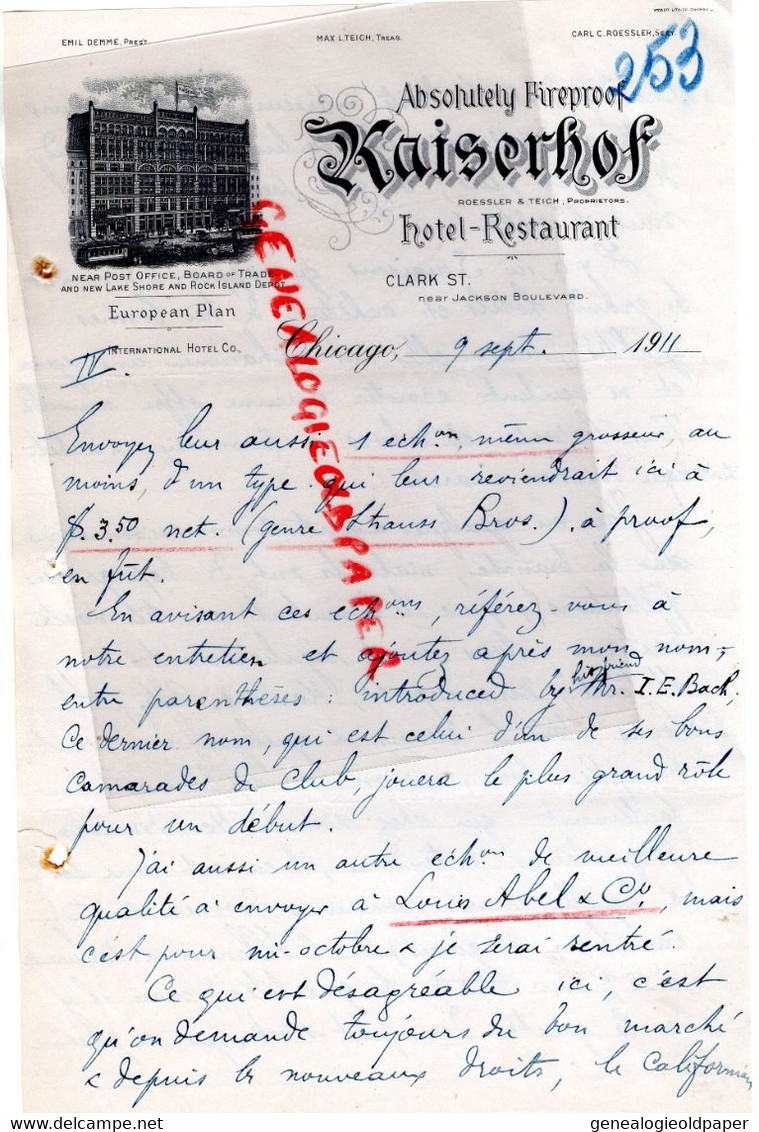 EMIL DEMME, PREST.
MAX L. TEICH, TREAS.
CARL C. ROESSLER, SECY.
253
Absolutely Fireproof
Kaiserhof
ROESSLER & TEICH, PROPRIETORS.
Hotel-Restaurant
CLARK ST.
near JACKSON BOULEVARD.
NEAR POST OFFICE, BOARD OF TRADE
AND NEW LAKE SHORE AND ROCK ISLAND DEPOT
European Plan
INTERNATIONAL HOTEL CO.
Chicago, 9 sept. 1911
IV.
Envoyez leur aussi 1 echon, même grosseur, au
moins, d'un type qui leur reviendrait ici à
$.3.50 net. (genre Strauss Bros.). à proof,
en fût.
En avisant ces echons, référez-vous à
notre entretien et ajoutez après mon nom,
entre parenthèses: introduced by his friend Mr. I. E. Bach,
Ce dernier nom, qui est celui d'un de ses bons
camarades de Club, jouera le plus grand rôle
pour un début.
J'ai aussi un autre echon de meilleure
qualité à envoyer à Louis Abel & Co, mais
c'est pour mi-octobre & je serai rentré.
Ce qui est désagréable ici, c'est
qu'on demande toujours du bon marché
& depuis les nouveaux droits, le Californien
GENEALOGIEOLDPAPER
genealogieoldpaper